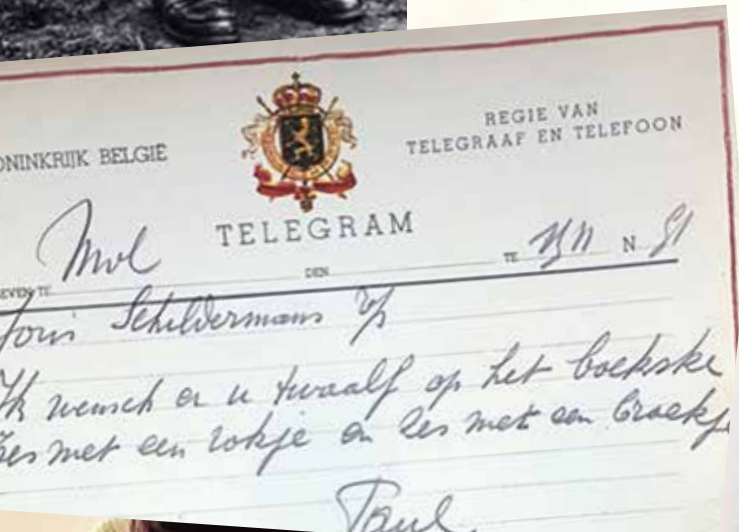 ONINKRIJK BELGIE
REGIE VAN
TELEGRAAF EN TELEFOON
TELEGRAM
Mol DEN TE N
EVEN TE
Joris Schildermans
Ik wensch er u twaalf op het boekske
Zes met een rokje en zes met een broekj
Paul